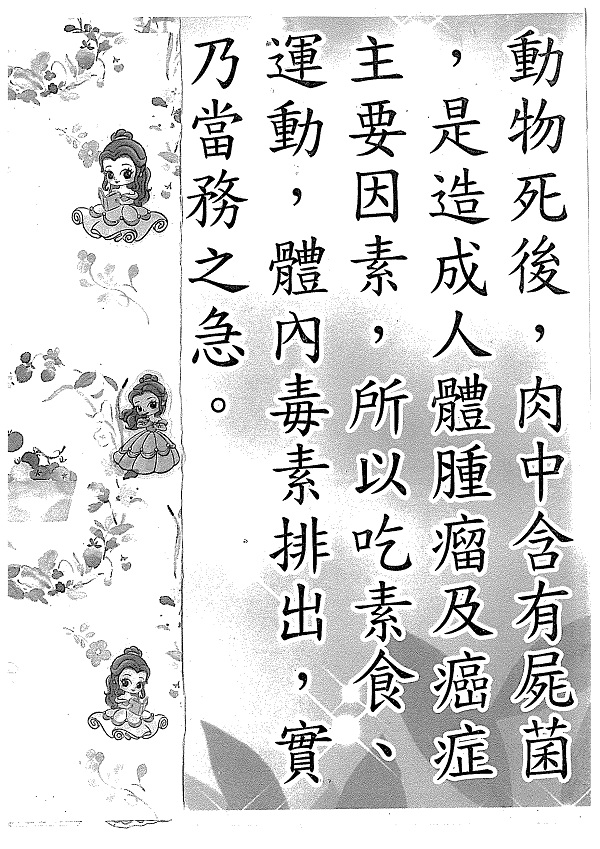 動物死後，肉中含有屍菌
，是造成人體腫瘤及癌症
主要因素，所以吃素食、
運動，體內毒素排出，實
乃當務之急。